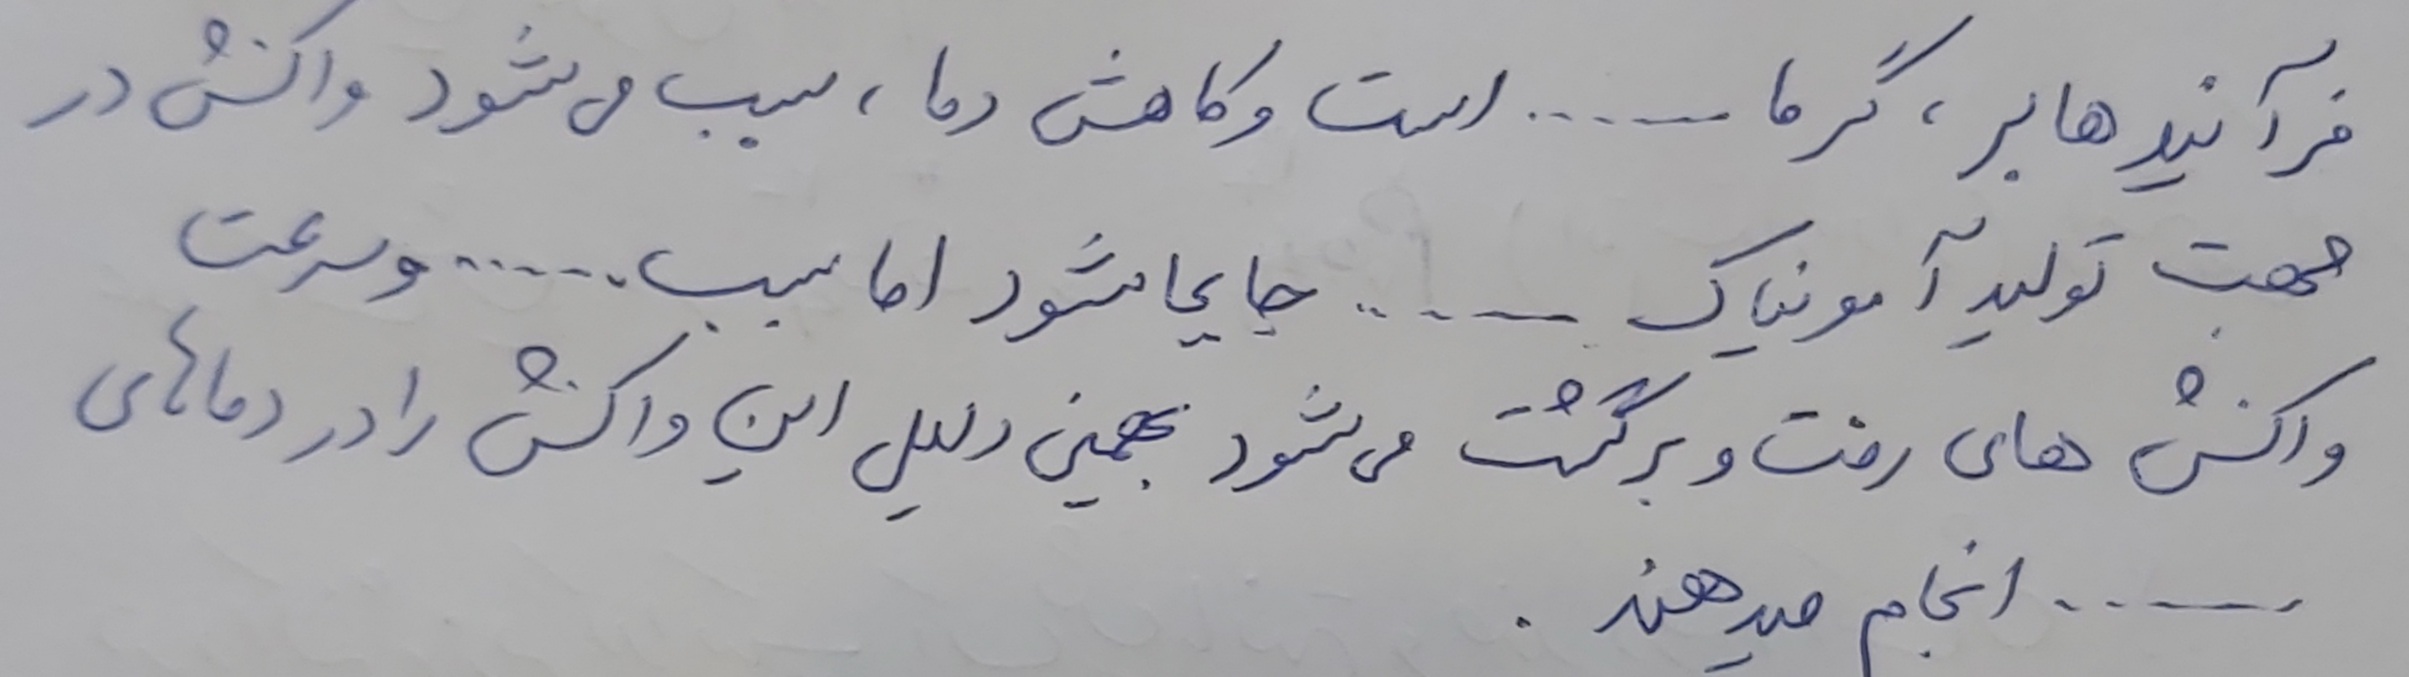 فرآیند هابر ، گرما ...... است و کاهش دما ، سبب می شود واکنش در
جهت تولید آمونیاک ...... جابجا شود اما سبب ...... و سرعت
واکنش های رفت و برگشت می شود بهمین دلیل این واکنش را در دماهای
...... انجام میدهند .